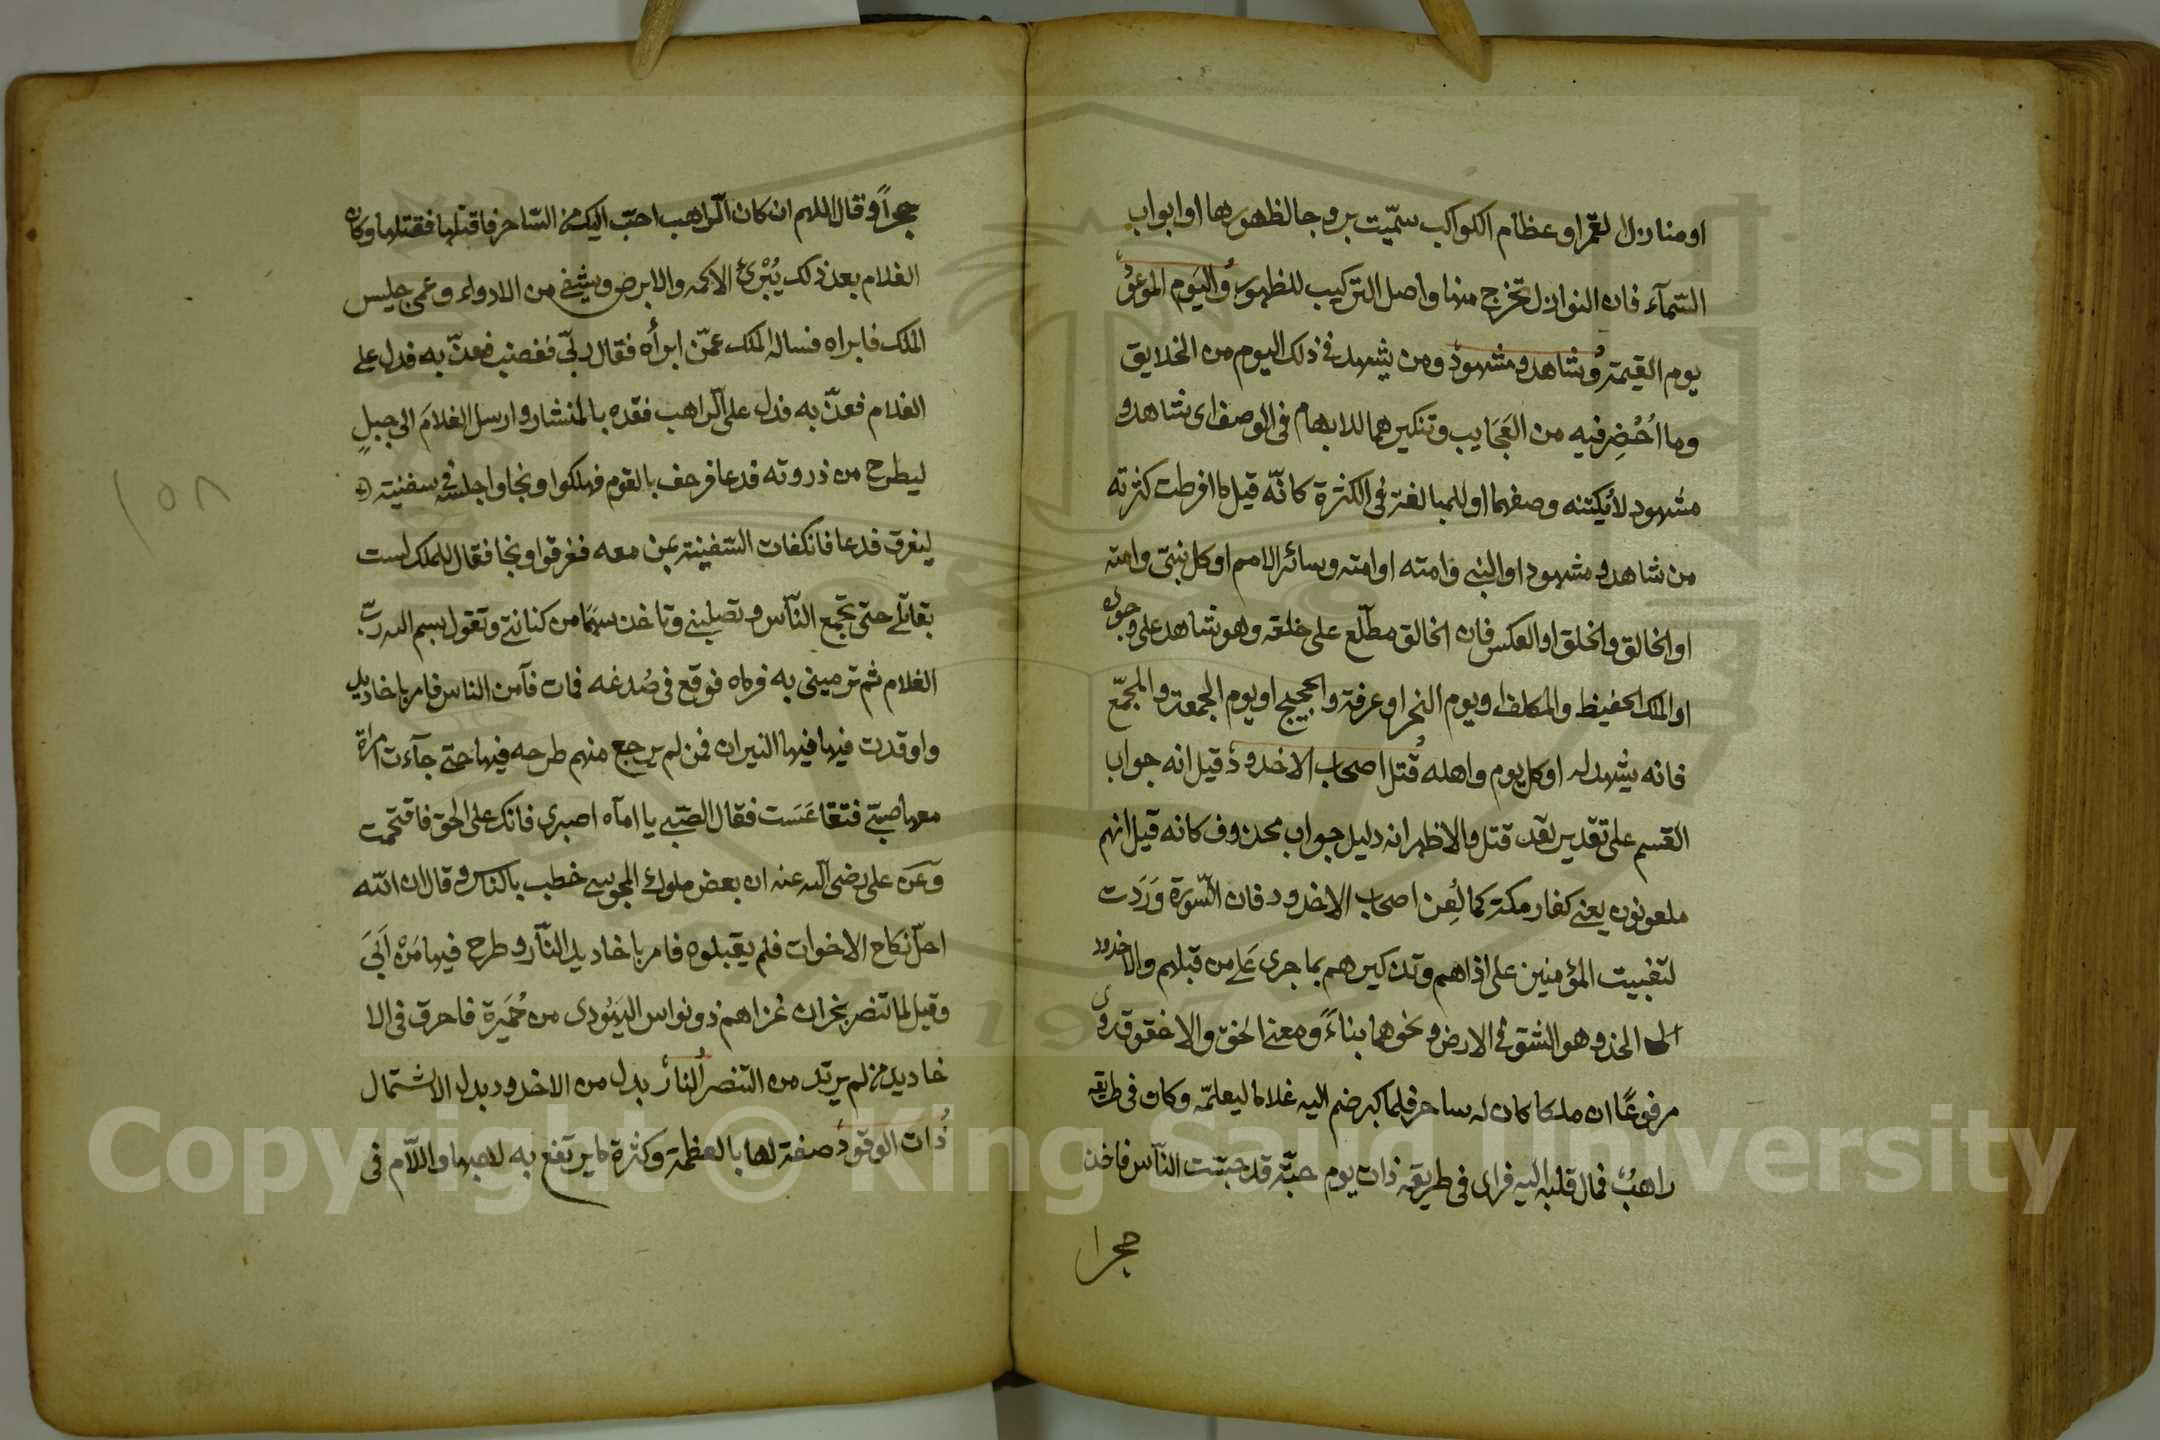 او منازل القمر او عظام الكواكب سمّيت بروجا لظهورها او ابواب
السّمآء فان النوازل تخرج منها واصل التركيب للظهور وُاليَوم الموعوُد
يوم القيمة وُشاهد ومشهودٌ ومن يشهد فى ذلك اليوم من الخلايق
وما اُحْضِر فيه من العَجَايب وتنكيرهما للابهام فى الوصف اى شاهد و
مشهود لا يكتنه وصفهما او للمبالغة فى الكثرة كانّه قيل ما افرطت كثرته
من شاهد ومشهود او النبى وامته او امته وسائر الامم او كل نبىّ وامته
او الخالق والخلق او العكس فان الخالق مطلّع على خلقه وهو شاهد على وجوده
او الملك الحفيظ والمكلف او يوم النحر او عرفة والحجيج او يوم الجمعة والمجمّع
فانه يشهد له او كل يوم واهله قُتل اصحاب الاخدودٌ قيل انه جواب
القسم على تقدير لقد قتل والاظهر انه دليل جواب محذوف كانه قيل انهم
ملعونون يعنى كفار مكة كما لُعِن اصحاب الاخدود فان السّورة وَرَدت
لتثبيت المؤمنين على اذاهم وتذكيرهم بما جرى عَلى من قبلهم والاخدود
الخد وهو الشق فى الارض ونحوهما بناءً ومعنى الخق والاخقوق روى
مرفوعًا ان ملكا كان له ساحر فلما كبر ضم اليه غلاما ليعلمّه وكان فى طريقه
راهبٌ فمال قلبه اليه فراى فى طريقه ذات يوم حيّة قد حبست النآس فاخذ
حجرا
حجراً وقال اللهم ان كان الرّاهب احبّ اليك من السّاحر فاقتلها فقتلها وكان
الغلام بعد ذلك يُبْرئ الاكمه والابرص ويشفى من الادواء وعمى جليس
الملك فابراه فساله الملك عمّن ابرأه فقال ربّى فغضب فعذّبه فدل على
الغلام فعذّبه فدل على الرّاهب فقده بالمنشار وارسل الغلامَ الى جبلٍ
ليطرح من ذروته فدعا فرجف بالقوم فهلكوا ونجا واجلسه فى سفينة
ليغرق فدعا فانكفات السّفينة بمن معه فغرقوا ونجا فقال للملك لست
بقاتلى حتى تجمع النآس وتصلبنى وتاخذ سهمًا من كنانتى وتقول بسم الله ربّ
الغلام ثم ترمينى به فرماه فوقع فى صُدغه فمات فآمن الناس فامر باخاديد
واوقدت فيها فيها النيران فمن لم يرجع منهم طرحه فيها حتى جآءت امراة
معها صبىّ فتقاعَسَت فقال الصّبى يا امآه اصبرى فانك على الحق فاقتحمت
وعَن على رضى الله عنه ان بعض ملوك المجوس خطب بالنّاس وقال ان الله
احلّ نكاح الاخوات فلم يقبلوه فامر باخاديد النآر وطرح فيها مَنْ اَبَى
وقيل لما تنصر نجران غزاهم ذو نواس اليَهُودى من حُمَيرة فاحرق فى الا
خاديد من لم يرتد من التنصر اُلنارٌ بدل من الاخدود بدل الاشتمال
ذُات الوقودٌ صفة لها بالعظمة وكثرة ما يرتفع به لهبها واللاّم فى
١٥٨
Copyright © King Saud University